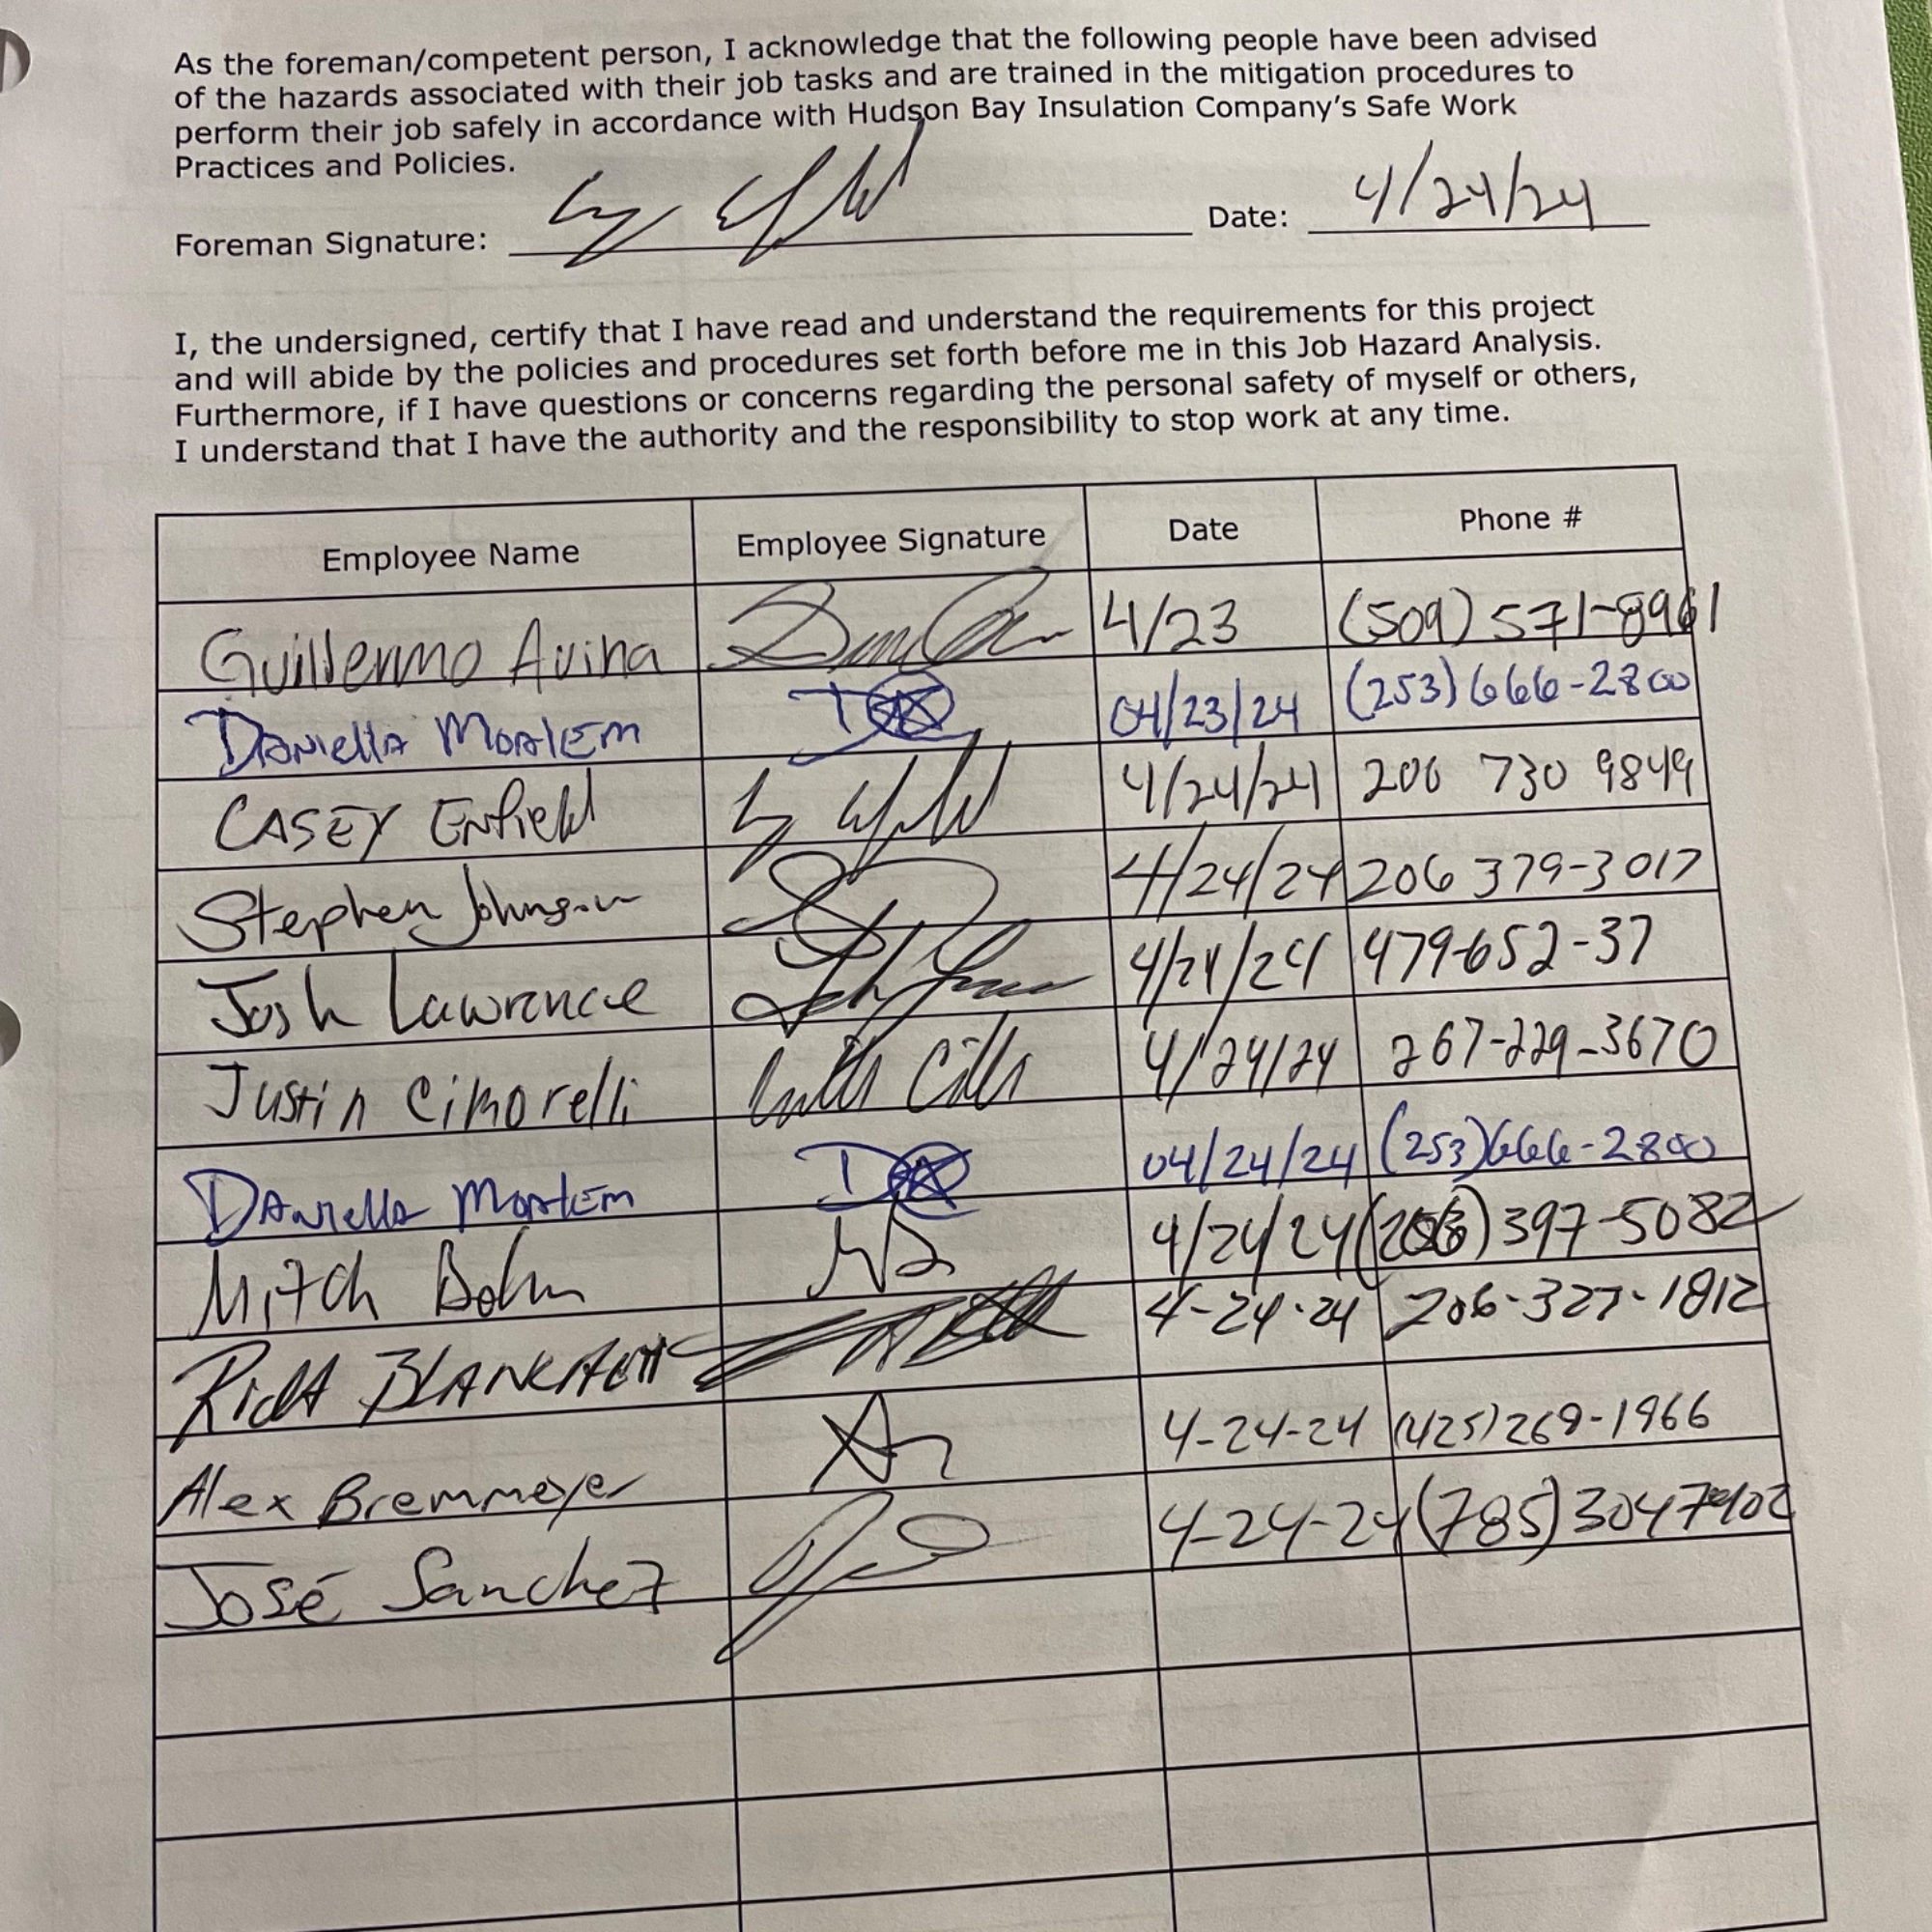 As the foreman/competent person, I acknowledge that the following people have been advised
of the hazards associated with their job tasks and are trained in the mitigation procedures to
perform their job safely in accordance with Hudson Bay Insulation Company's Safe Work
Practices and Policies.
Foreman Signature: Date: 4/24/24
I, the undersigned, certify that I have read and understand the requirements for this project
and will abide by the policies and procedures set forth before me in this Job Hazard Analysis.
Furthermore, if I have questions or concerns regarding the personal safety of myself or others,
I understand that I have the authority and the responsibility to stop work at any time.
Employee Name Employee Signature Date Phone #
Guillermo Avina 4/23 (509) 571-8961
Daniella 04/23/24 (253) 666-2800
CASEY Enfield 4/24/24 206 730 9849
Stephen Johnson 4/24/24 206 379-3017
Josh Lawrence 4/24/24 479-652-37
Justin Cimorelli 4/24/24 267-229-3670
Daniella 04/24/24 (253) 666-2800
Mitch 4/24/24 397-5082
4-24-24 206-327-1812
Alex Bremmeyer 4-24-24 (425) 269-1966
José Sanchez 4-24-24 (785) 304